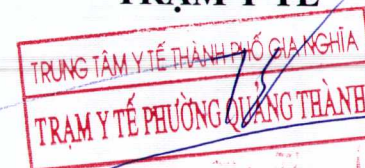 TRẠM Y TẾ
TRUNG TÂM Y TẾ THÀNH PHỐ GIA NGHĨA
TRẠM Y TẾ PHƯỜNG QUẢNG THÀNH